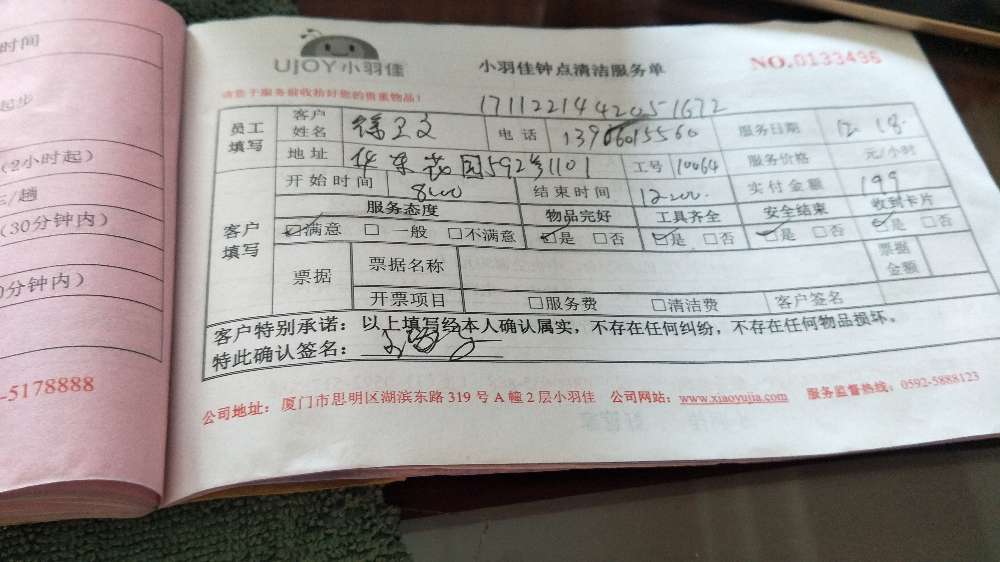 时间
起步
（2小时起）
元/趟
（30分钟内）
0分钟内）
-5178888
UJOY小羽佳
小羽佳钟点清洁服务单
NO.0133496
请您于服务前收拾好您的贵重物品！
1711221442051672
员工填写
客户姓名
电话
服务日期 12.18.
地址 华东花园592号1101
工号 10064
服务价格 元/小时
客户填写
开始时间 8:00
结束时间 12:00.
实付金额 199
服务态度 物品完好 工具齐全 安全结束 收到卡片
满意 一般 不满意 是 否 是 否 是 否 是 否
票据
票据名称
票据金额
开票项目
服务费 清洁费
客户签名
客户特别承诺：以上填写经本人确认属实，不存在任何纠纷，不存在任何物品损坏。
特此确认签名：
公司地址：厦门市思明区湖滨东路319号A幢2层小羽佳 公司网站：www.xiaoyujia.com 服务监督热线：0592-5888123